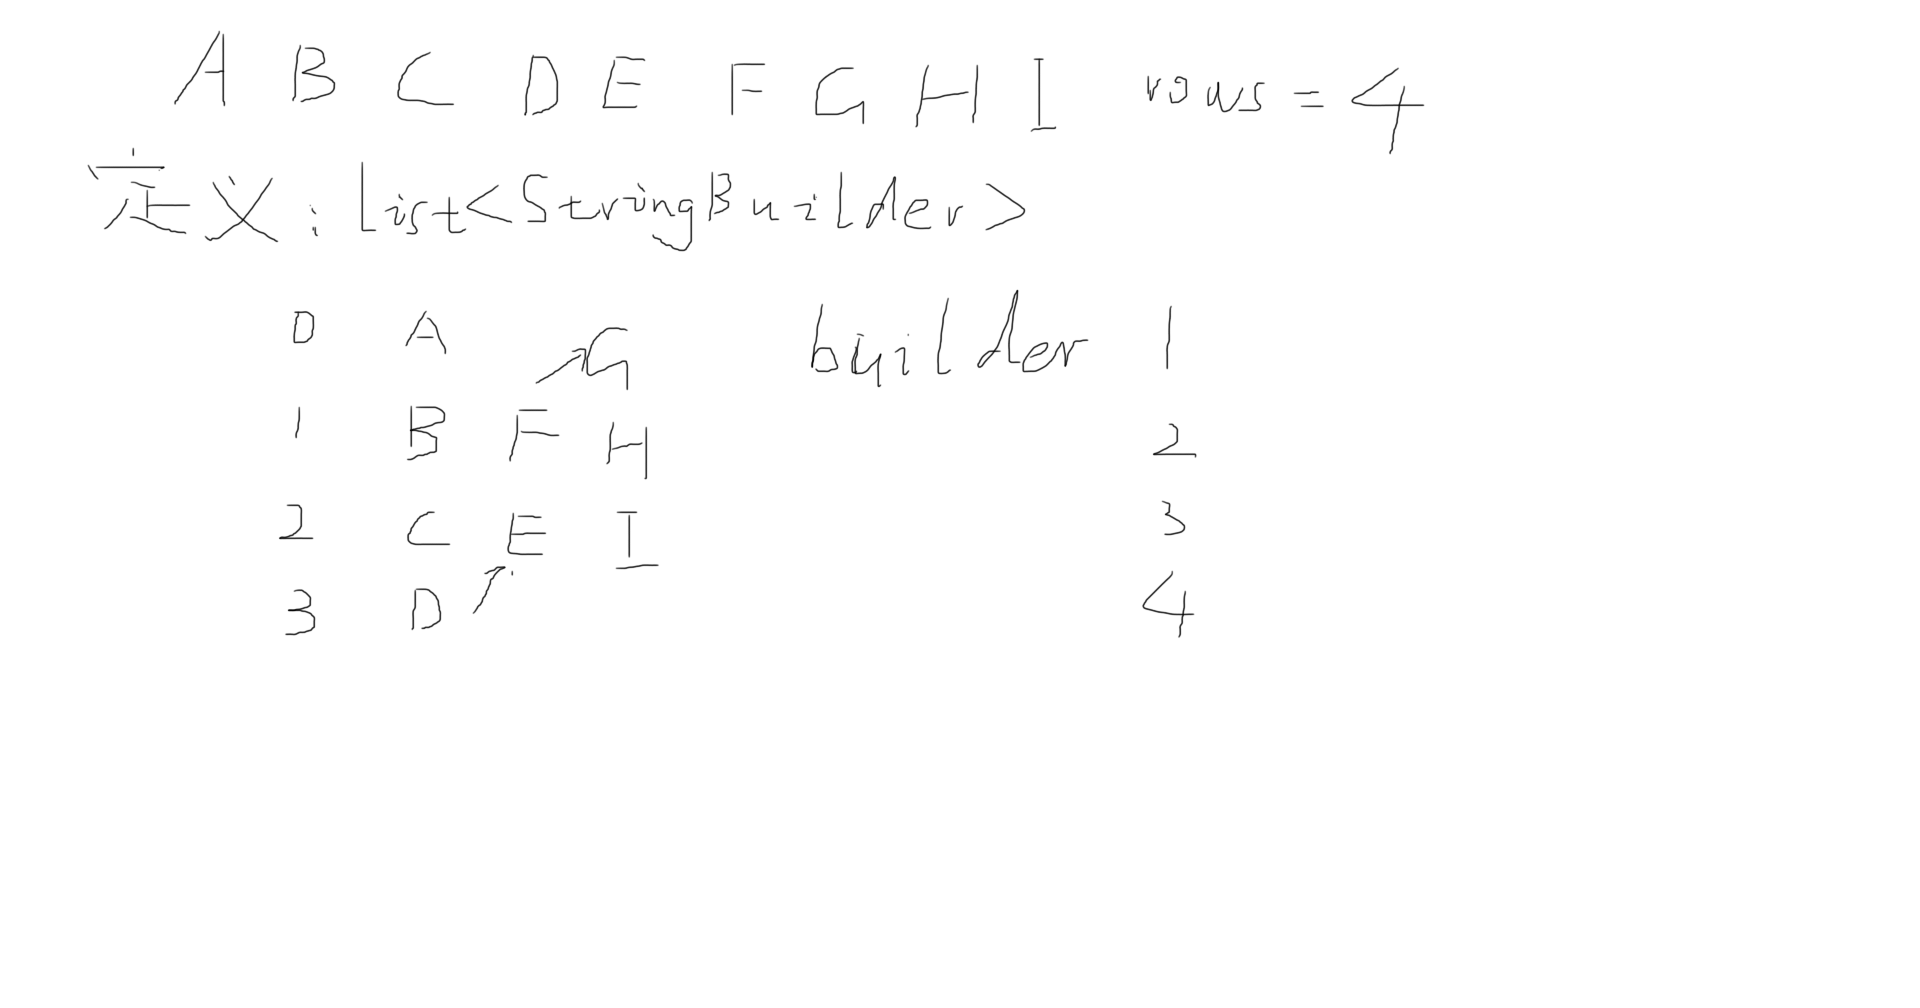 A B C D E F G H I rows = 4
定义: List<StringBuilder>
0 A G builder 1
1 B F H 2
2 C E I 3
3 D 4